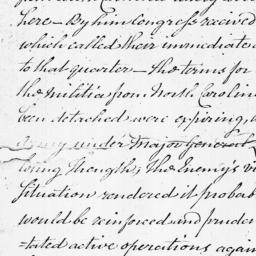 here – By him Congress received
which called their immediate
to that quarter – The terms for
the militia from North Carolin
been detached were expiring,
Army under Major General
bring Strength; the Enemy's vi
Situation rendered it probab
would be reinforced and pruden
=tated active operations again